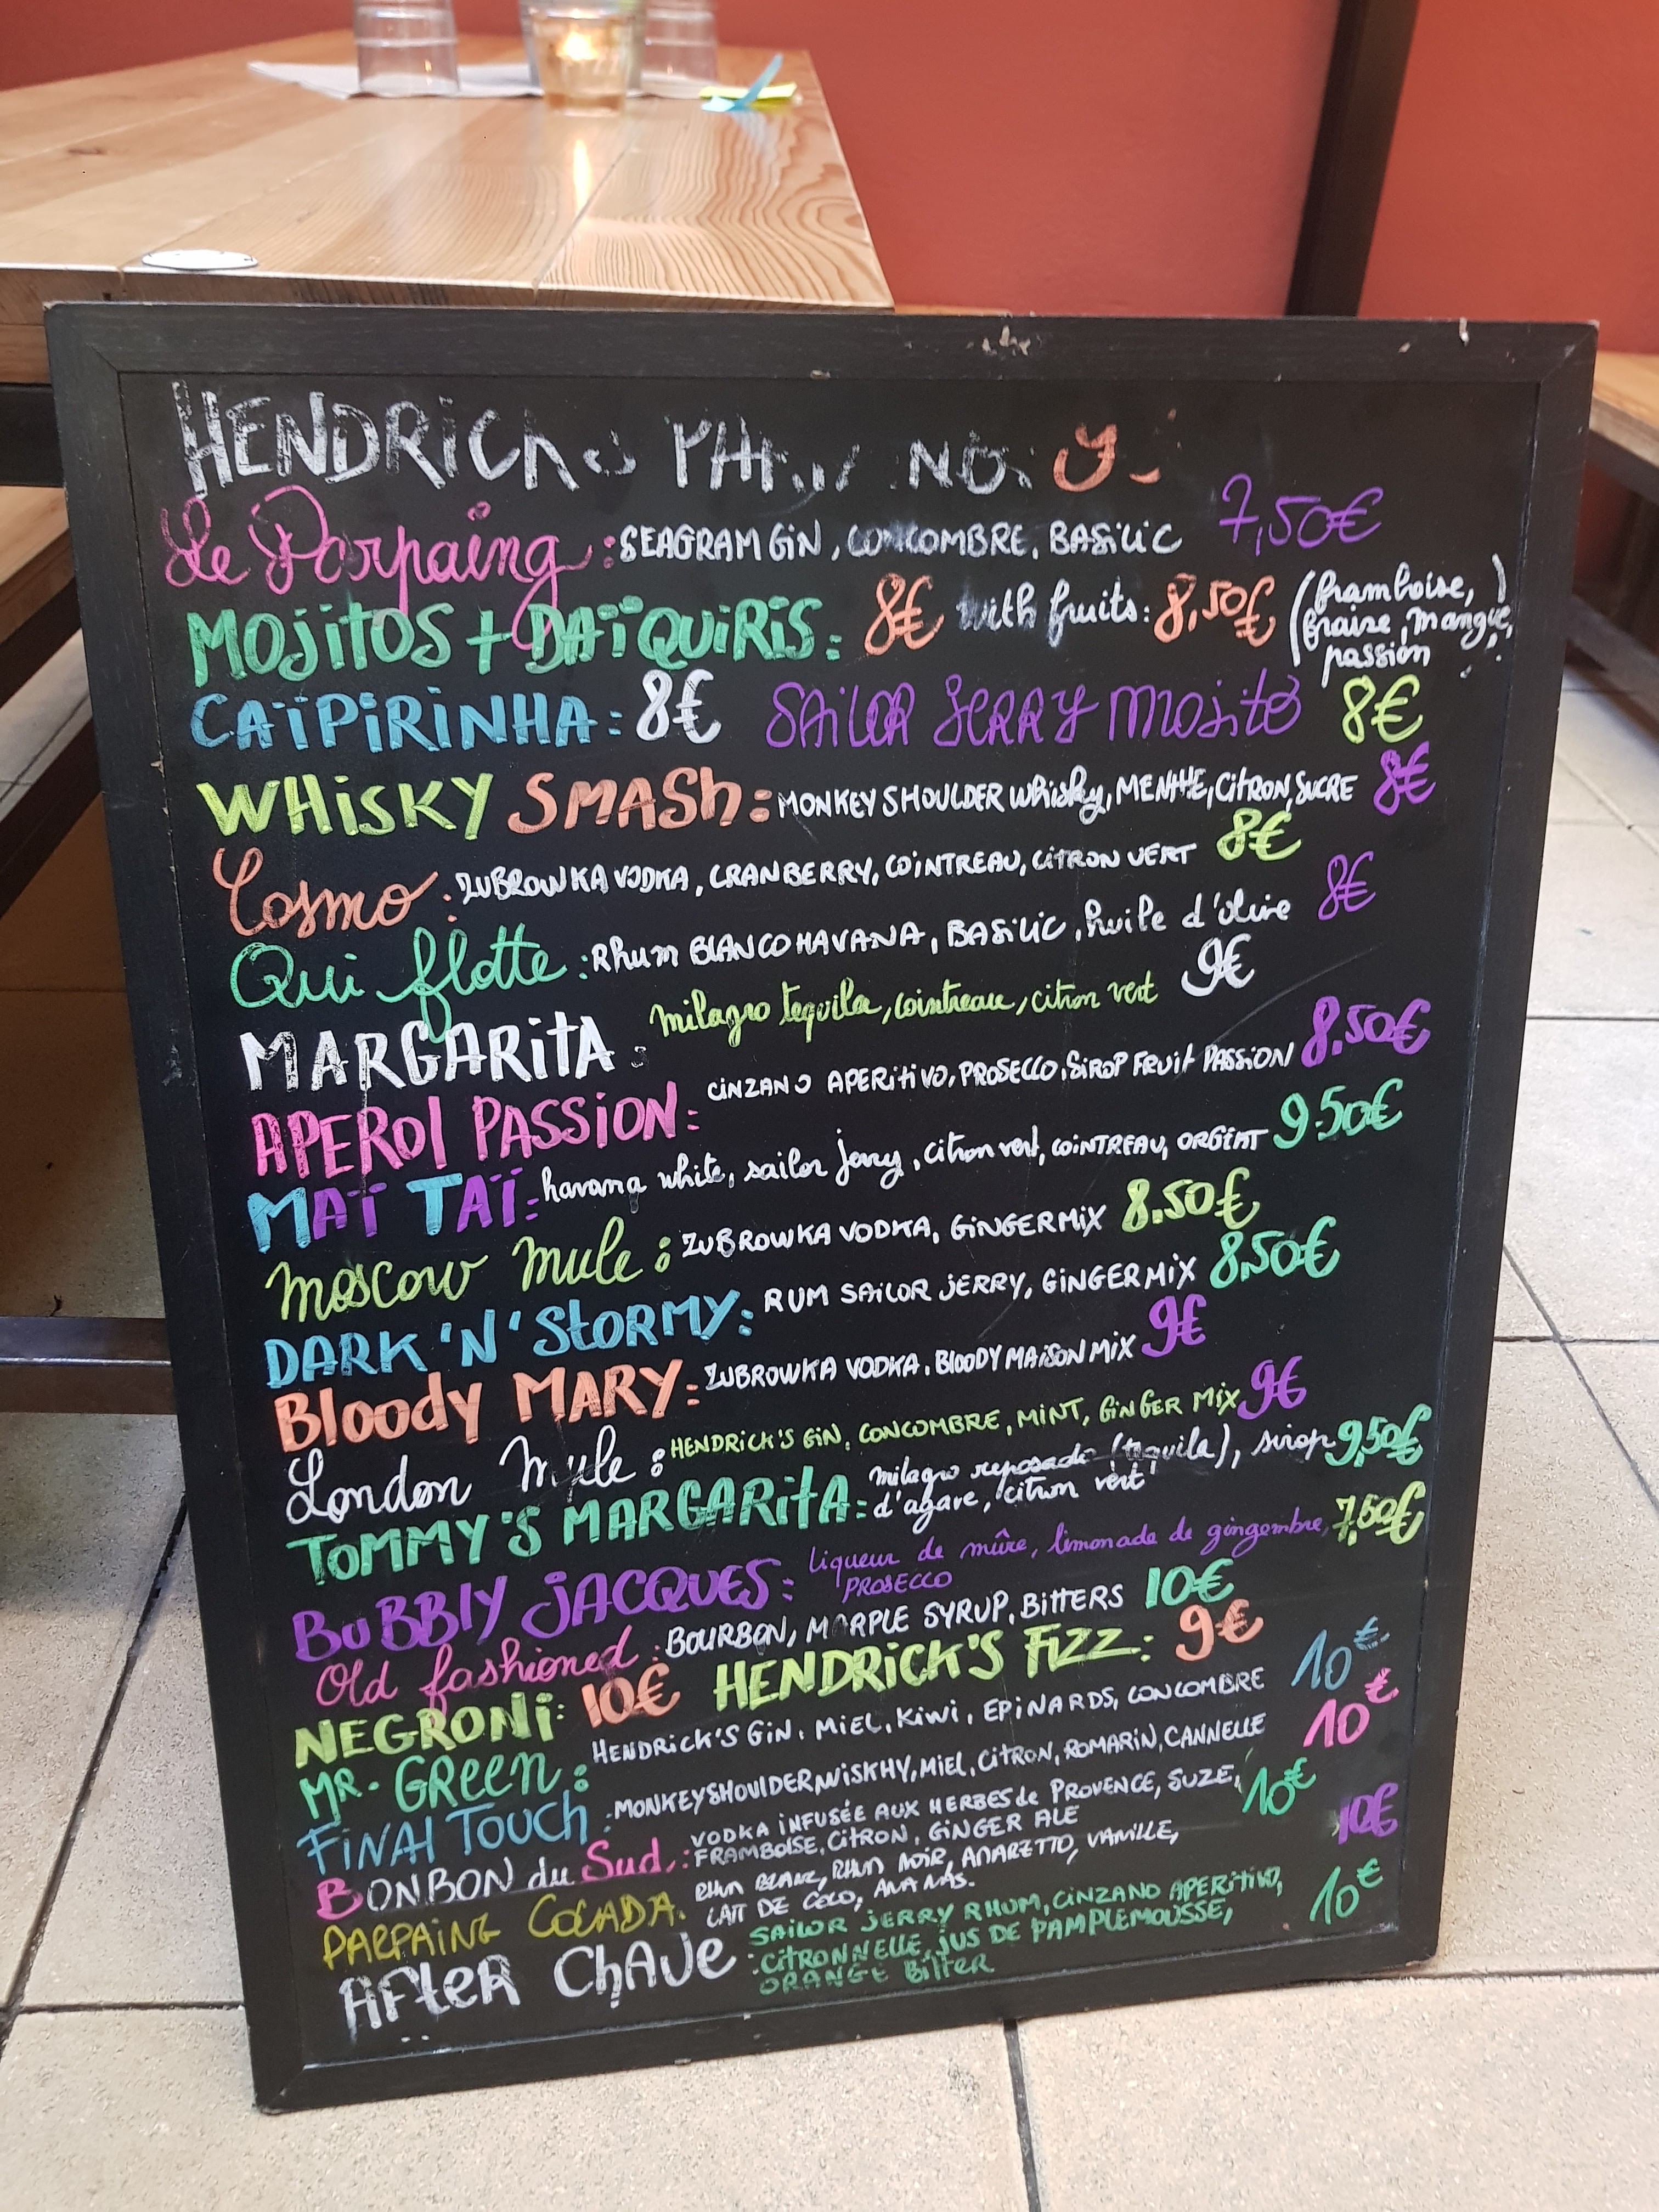 HENDRICK
Le Parpaing : SEAGRAM GIN, CONCOMBRE, BASILIC 7,50€
MOJITOS + DAÏQUIRIS : 8€ with fruits : 8,50€ (framboise, fraise, mangue, passion)
CAÏPIRINHA : 8€ SAILOR JERRY MOJITO 8€
WHISKY SMASH : MONKEY SHOULDER Whisky, MENTHE, CITRON, SUCRE 8€
Cosmo : ZUBROWKA VODKA, CRANBERRY, COINTREAU, CITRON VERT 8€
Qui flotte : Rhum BLANCO HAVANA, BASILIC, huile d'olive 8€
MARGARITA : milagro tequila, cointreau, citron vert 9€
APEROL PASSION : CINZANO APERITIVO, PROSECCO, SIROP FRUIT PASSION 8.50€
MAÏ TAÏ : havana white, sailor jerry, citron vert, COINTREAU, ORGEAT 9.50€
Moscow Mule : ZUBROWKA VODKA, GINGER MIX 8.50€
DARK 'N' STORMY : RUM SAILOR JERRY, GINGER MIX 8,50€
Bloody MARY : ZUBROWKA VODKA, BLOODY MAISON MIX 9€
London Mule : HENDRICK'S GIN, CONCOMBRE, MINT, GINGER MIX 9€
TOMMY'S MARGARITA : milagro reposado (tequila), sirop d'agave, citron vert 9,50€
BUBBLY JACQUES : liqueur de mûre, limonade de gingembre, PROSECCO 7,50€
Old fashioned : BOURBON, MARPLE SYRUP, BITTERS 10€
NEGRONI : 10€ HENDRICK'S FIZZ : 9€
MR. GREEN : HENDRICK'S GIN, MIEL, KIWI, EPINARDS, CONCOMBRE 10€
FINAL TOUCH : MONKEY SHOULDER WISKHY, MIEL, CITRON, ROMARIN, CANNELLE 10€
BONBON du Sud : VODKA INFUSÉE AUX HERBES de PROVENCE, SUZE, FRAMBOISE, CITRON, GINGER ALE 10€
PARPAING COLADA. RHUM BLANC, RHUM NOIR, AMARETTO, VANILLE, LAIT DE COCO, ANANAS. 10€
AFTER CHAVE : SAILOR JERRY RHUM, CINZANO APERITIVO, CITRONNELLE, JUS DE PAMPLEMOUSSE, ORANGE BITTER 10€